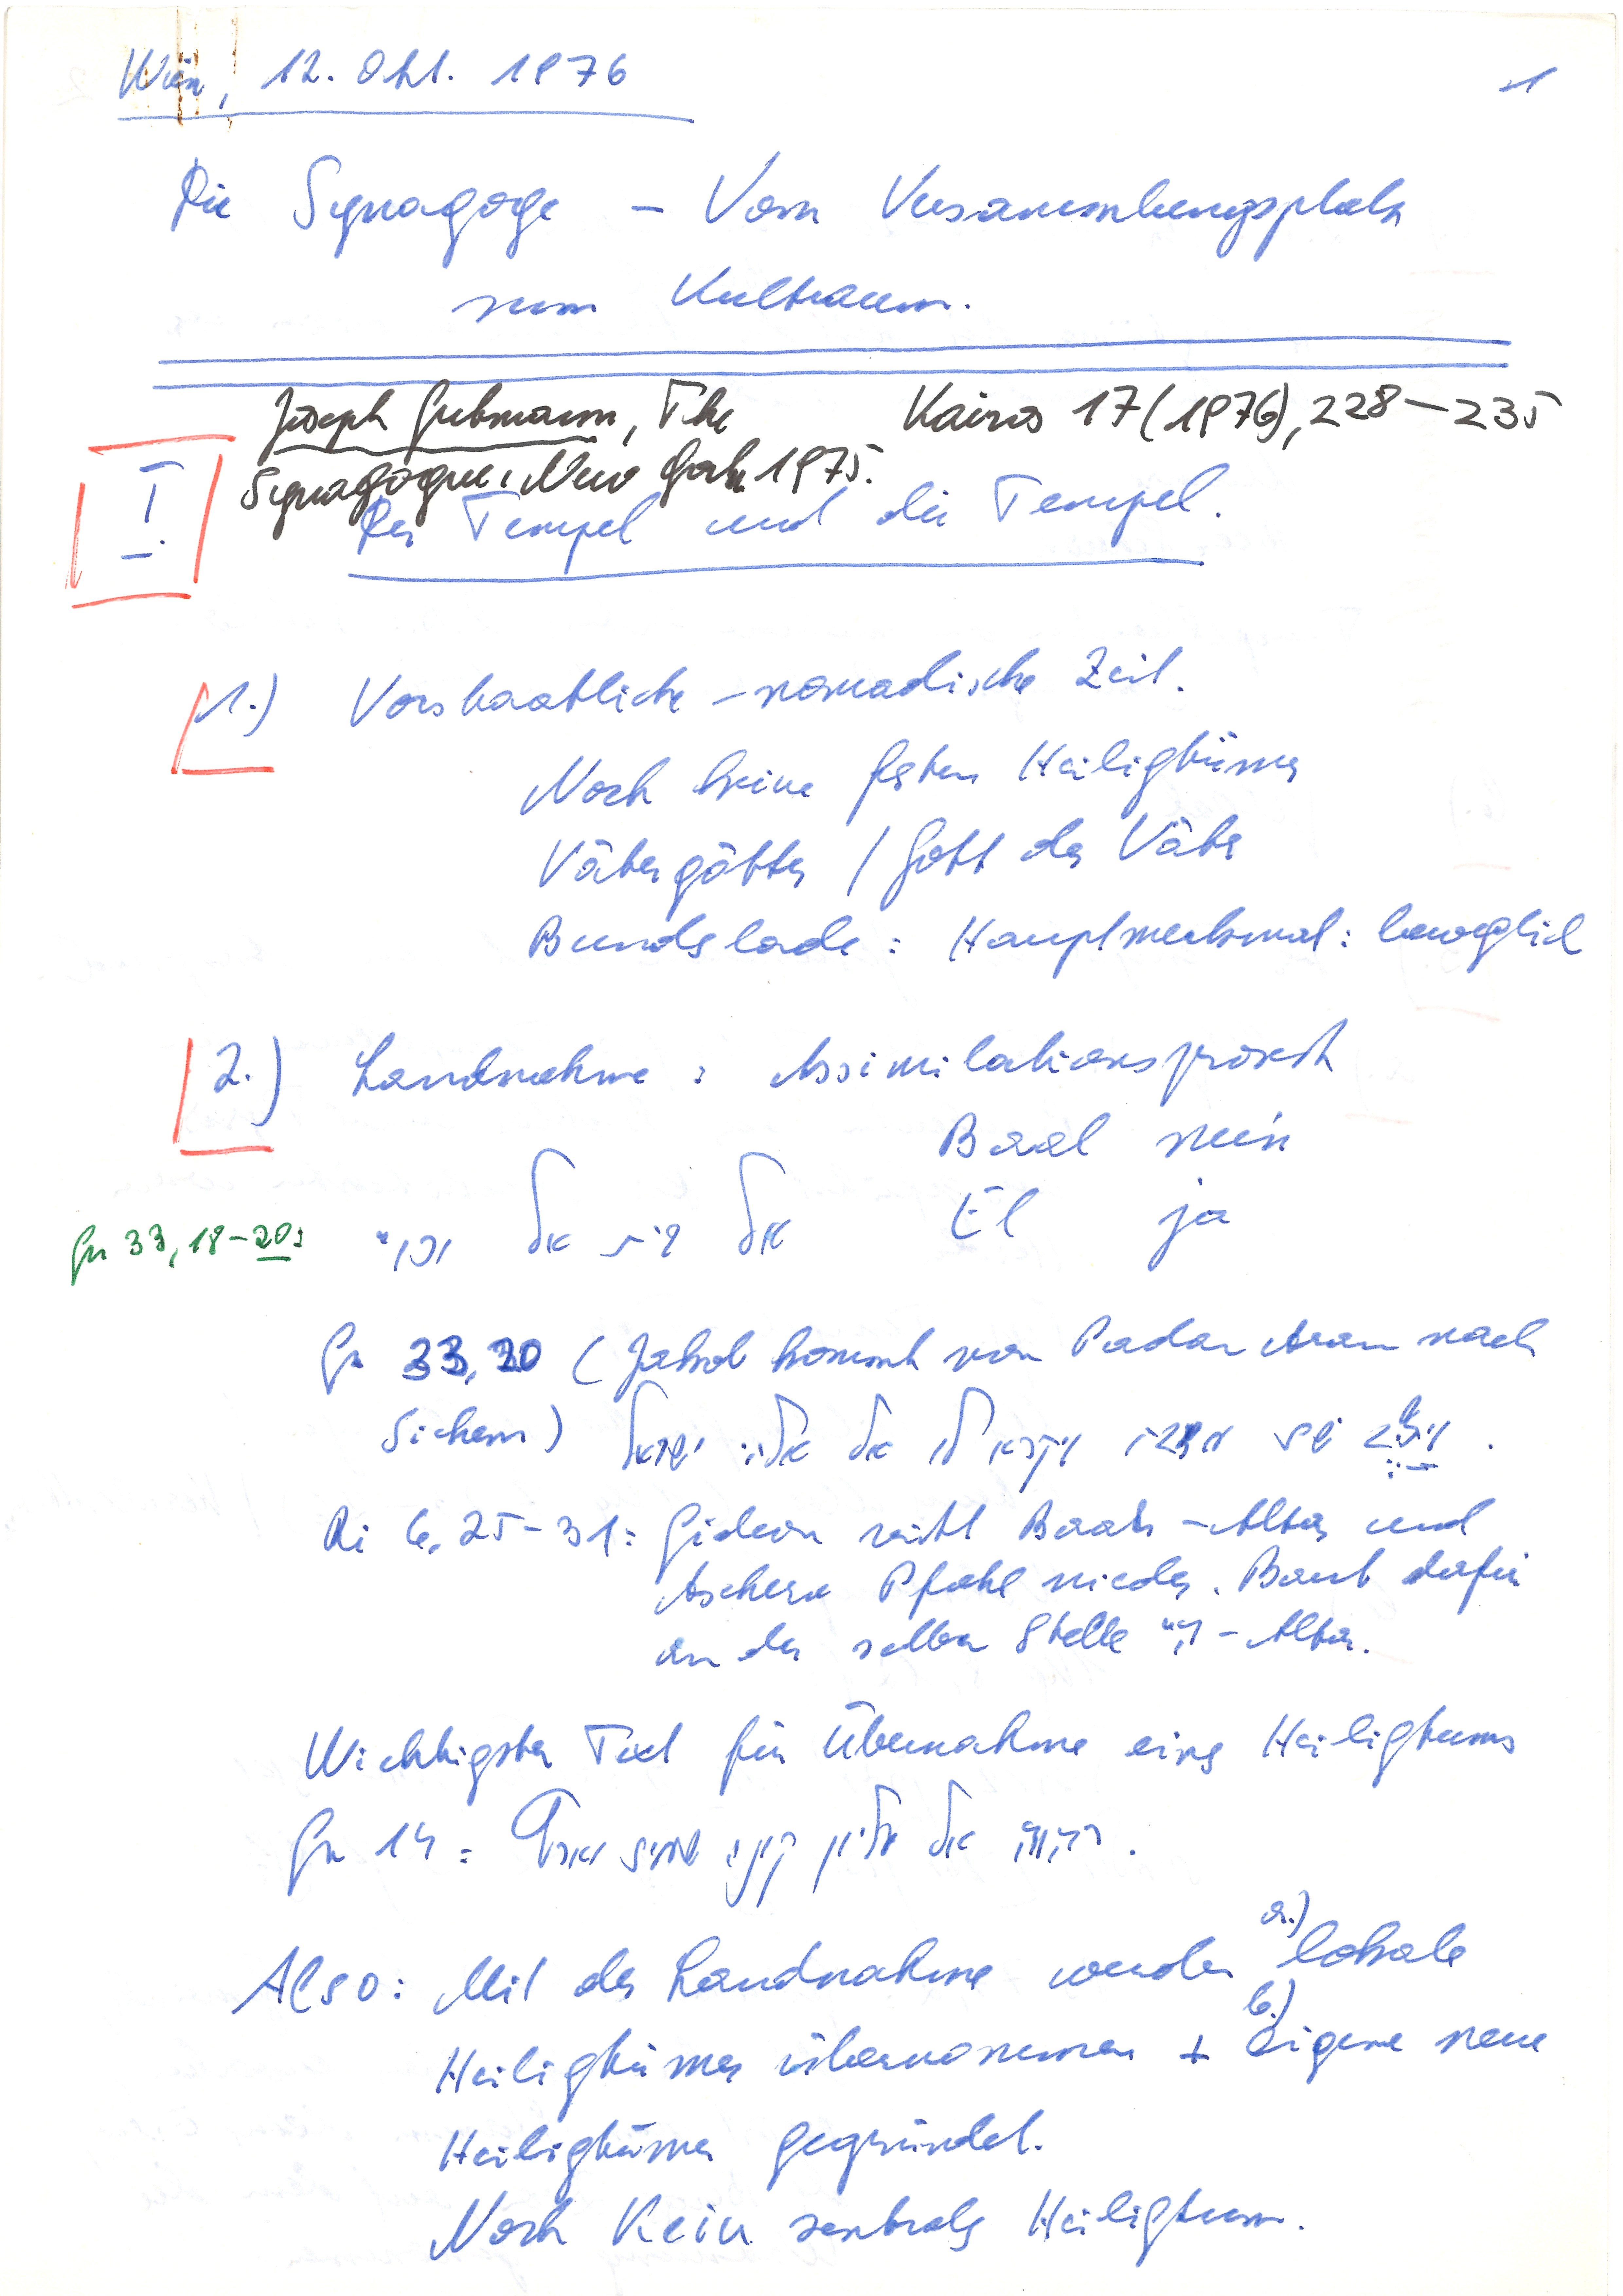 Wien, 12. Okt. 1976
1
Die Synagoge – Vom Versammlungsplatz
zum Kultraum.
Joseph Gutmann, The
Kairos 17 (1976), 228–235
Synagogue, New York 1975.
I.
Der Tempel und die Tempel.
1.) Vorstaatliche – nomadische Zeit.
Noch keine festen Heiligtümer
Vätergötter / Gott der Väter
Bundeslade: Hauptmerkmal: beweglich
2.) Landnahme: Assimilationsprozeß
Baal nein
El ja
Gn 33,18–20: אל אל
Gn 33,20 (Jakob kommt von Padan Aram nach
Sichem) ויצב שם מזבח ויקרא לו אל אלהי ישראל.
Ri 6,25–31: Gideon reißt Baals-Altar und
Aschera Pfahl nieder. Baut dafür
an der selben Stelle -Altar.
Wichtigster Text für Übernahme eines Heiligtums
Gn 14: אל עליון קנה שמים וארץ.
Also: Mit der Landnahme werden a.) lokale
Heiligtümer übernommen + b.) eigene neue
Heiligtümer gegründet.
Noch Kein zentrales Heiligtum.